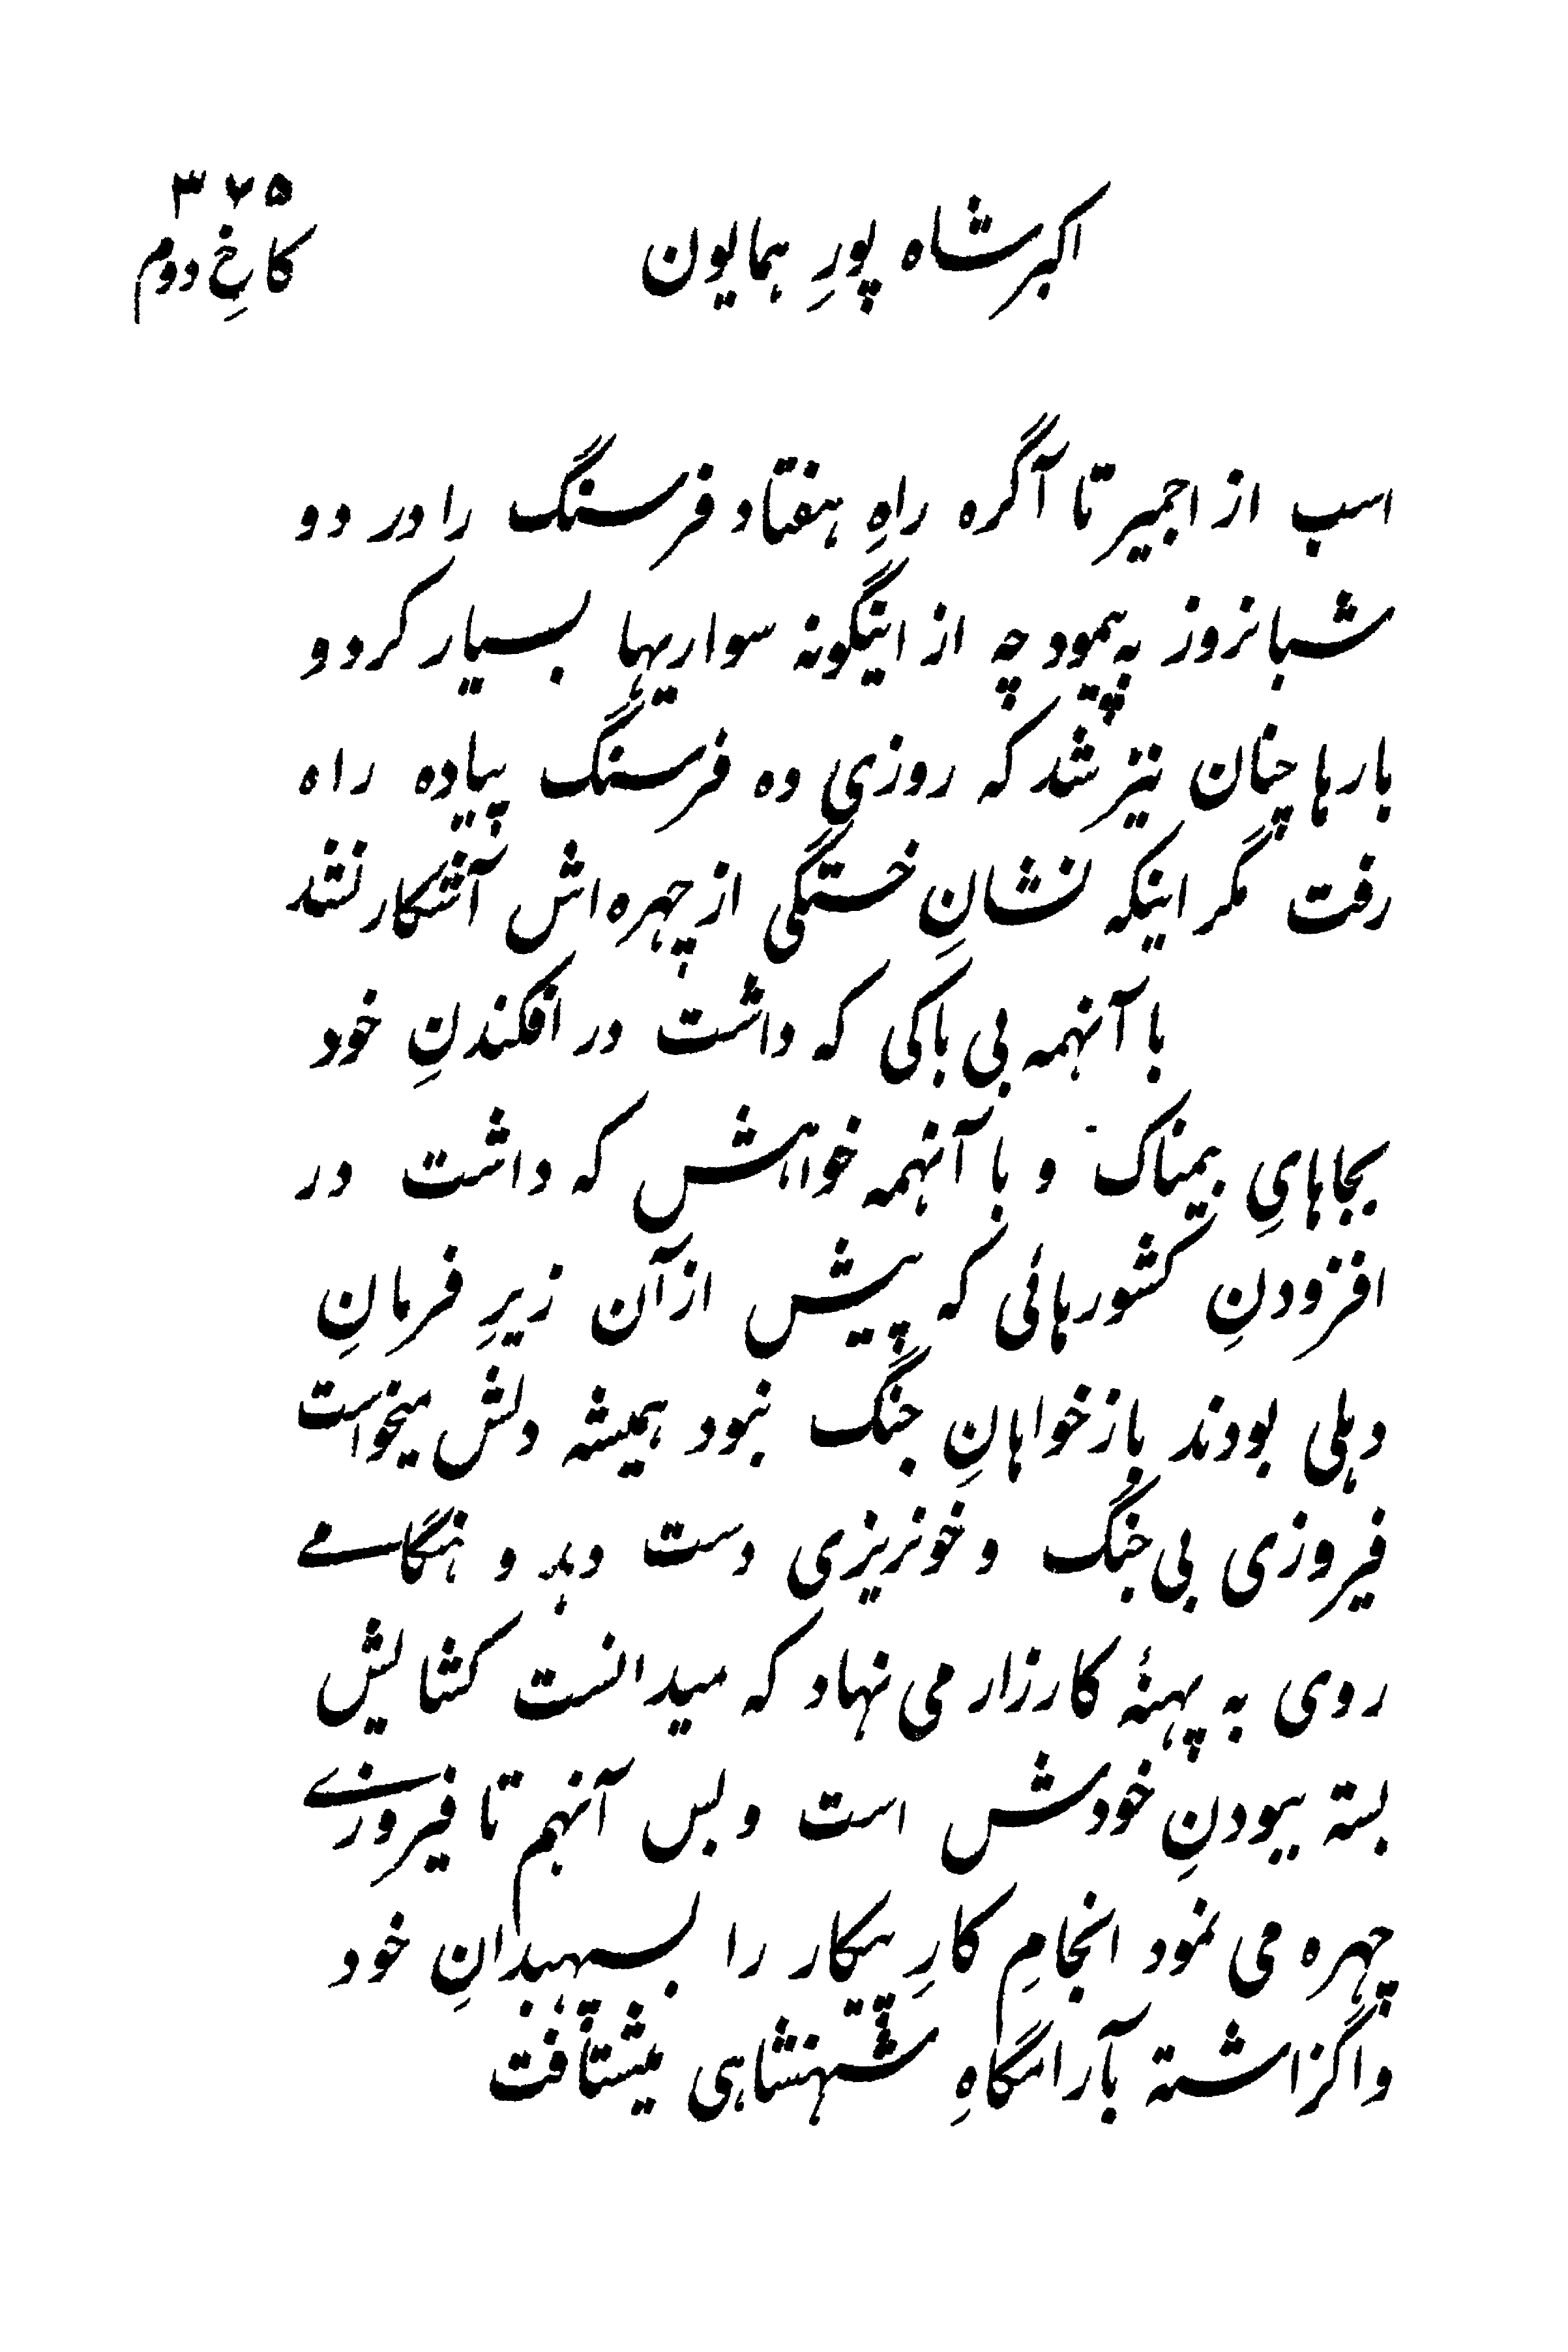 ۳۶۵
اکبر شاه پورِ همایون
کاخِ دوم
اسب از اجمیر تا آگره راهِ هفتاد فرسنگ را در دو
شبانروز به پیمود چه از اینگونه سواریها بسیار کرد و
بارها چنان نیز شد که روزی ده فرسنگ پیاده راه
رفت مگر اینکه نشانِ خستگی از چهره اش آشکار نشد
با آنهمه بی باکی که داشت در افکندنِ خود
بجاهایِ بیمناک و با آنهمه خواهش که داشت در
افزودنِ کشورهائی که پیش از آن زیرِ فرمانِ
دهلی بودند باز خواهانِ جنگ نبود همیشه دلش میخواست
فیروزی بی جنگ و خونریزی دست دهد و هنگامے
روی به پهنۀ کارزار می نهاد که میدانست کشایش
بسته ببودنِ خودش است و بس آنهم تا فیروزے
چهره می نمود انجامِ کارِ پیکار را بسپهبدانِ خود
واگزاشته بآرامگاهِ شهنشاهی میشتافت